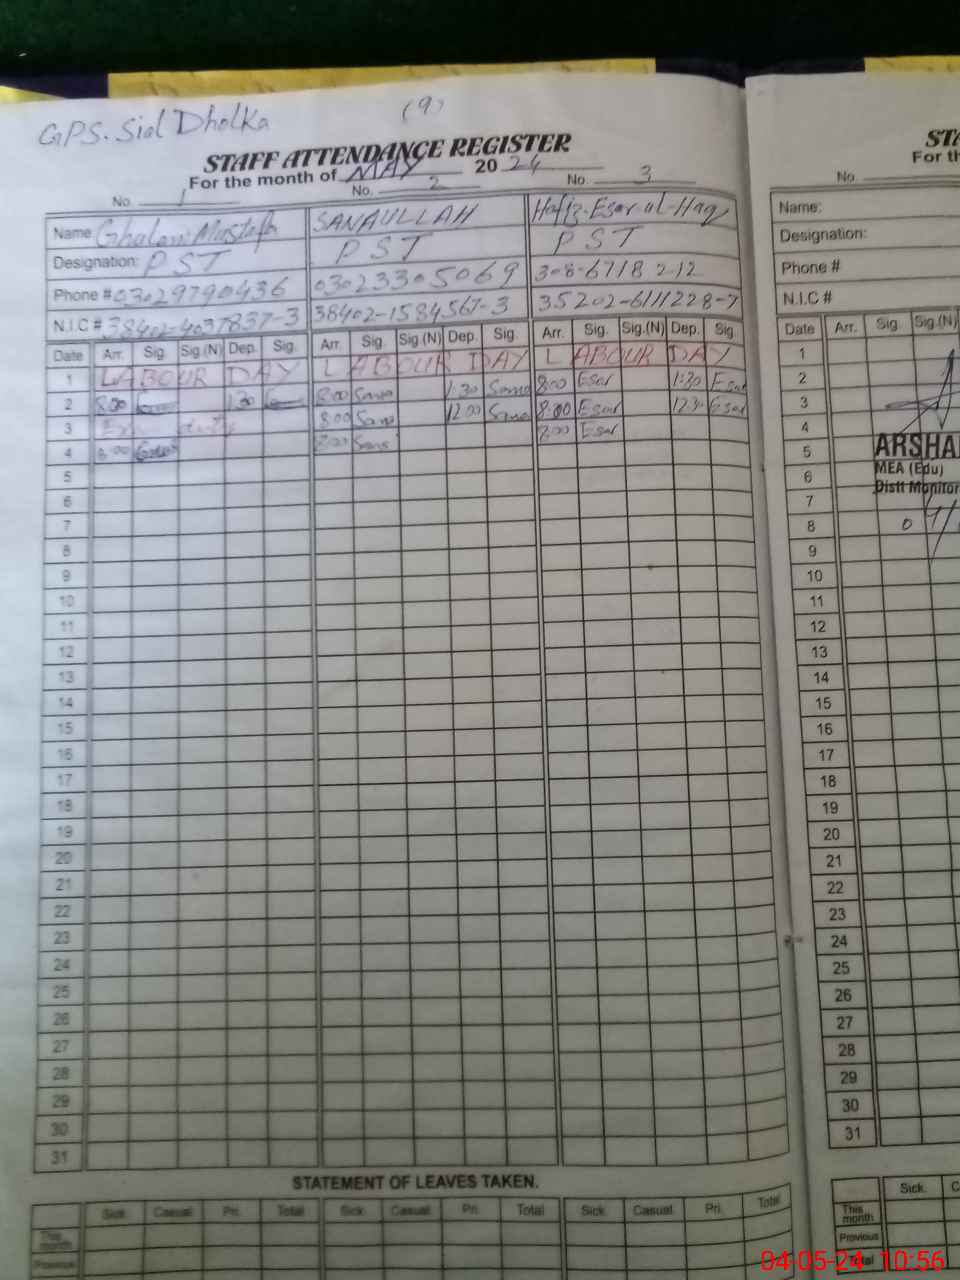 GPS. Sial Dholka
(9)
STAFF ATTENDANCE REGISTER
For the month of MAY 2024
No. 1 No. 2 No. 3
Name: Ghulam Mustafa SANAULLAH Hafiz-Esar-ul-Haq
Designation: PST PST PST
Phone # 03029790436 03023305069 308-6718 2-12
N.I.C # 38402-4037837-3 38402-1584567-3 35202-6111228-7
Date Arr. Sig. Sig.(N) Dep. Sig. Arr. Sig. Sig.(N) Dep. Sig. Arr. Sig. Sig.(N) Dep. Sig.
1 LABOUR DAY LABOUR DAY LABOUR DAY
2 8:00 1:30 8:00 Sana 1:30 Sana 8:00 Esar 1:30 Esar
3 duty 8:00 Sana 12:00 Sana 8:00 Esar 12:30 Esar
4 8:00 8:00 Sana 8:00 Esar
5
6
7
8
9
10
11
12
13
14
15
16
17
18
19
20
21
22
23
24
25
26
27
28
29
30
31
STATEMENT OF LEAVES TAKEN.
Sick Casual Pri. Total Sick. Casual. Pri. Total Sick. Casual. Pri. Total
This month
Previous
STA
For th
No.
Name:
Designation:
Phone #
N.I.C #
Date Arr. Sig. Sig.(N)
1
2
3
4
5
6
7
8
9
10
11
12
13
14
15
16
17
18
19
20
21
22
23
24
25
26
27
28
29
30
31
ARSHA
MEA (Edu)
Distt Monitor
Sick. C
This month
Previous
Total
04-05-24 10:56